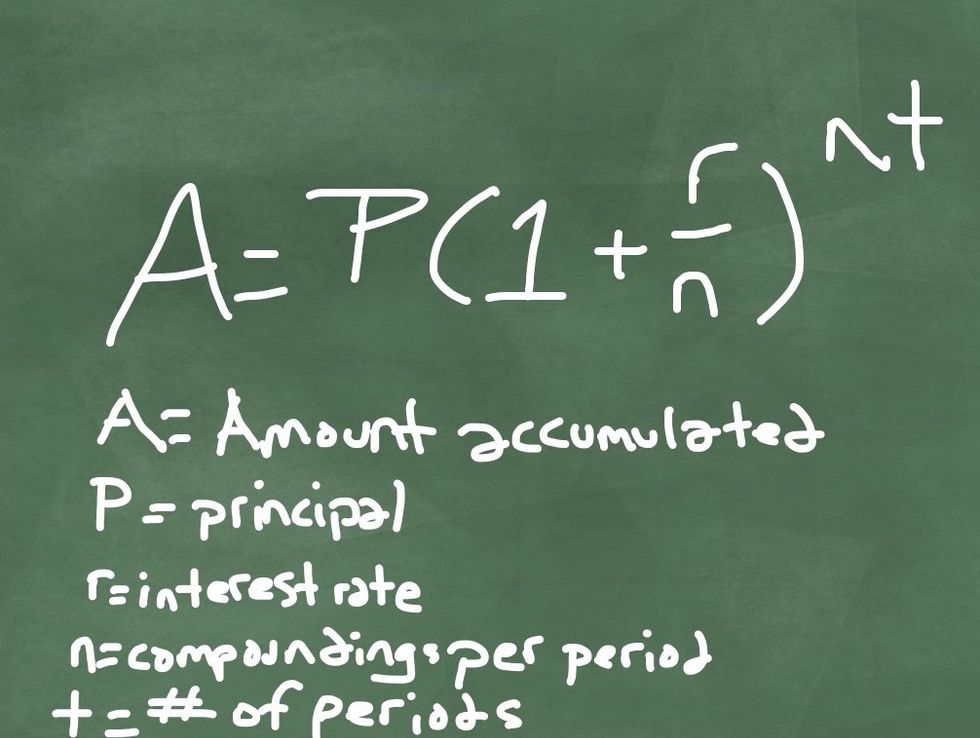 A=P(1+r/n)^nt
A= Amount accumulated
P= principal
r=interest rate
n=compoundings per period
t=# of periods